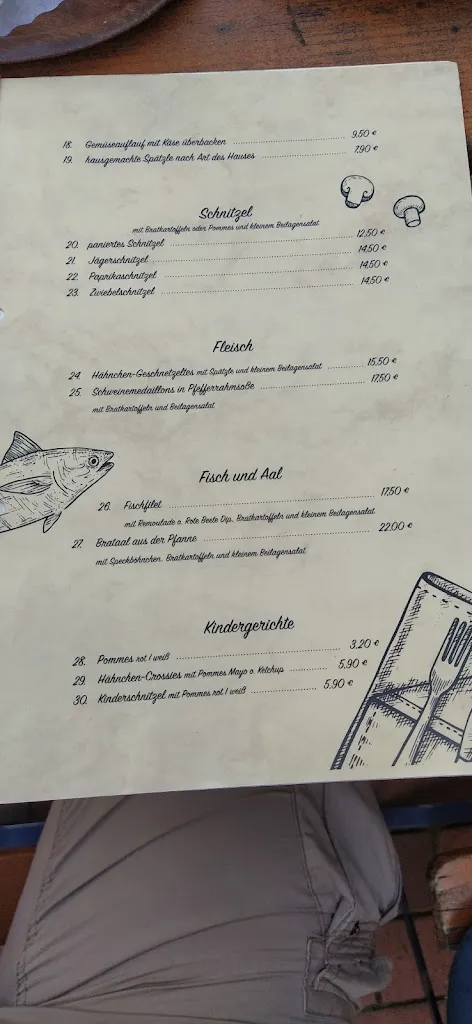 18. Gemüseauflauf mit Käse überbacken 9,50 €
19. hausgemachte Spätzle nach Art des Hauses 7,90 €
Schnitzel
mit Bratkartoffeln oder Pommes und kleinem Beilagensalat
20. paniertes Schnitzel 12,50 €
21. Jägerschnitzel 14,50 €
22. Paprikaschnitzel 14,50 €
23. Zwiebelschnitzel 14,50 €
Fleisch
24. Hähnchen-Geschnetzeltes mit Spätzle und kleinem Beilagensalat 15,50 €
25. Schweinemedaillons in Pfefferrahmsoße 17,50 €
mit Bratkartoffeln und Beilagensalat
Fisch und Aal
26. Fischfilet 17,50 €
mit Remoulade o. Rote Beete Dip, Bratkartoffeln und kleinem Beilagensalat
27. Brataal aus der Pfanne 22,00 €
mit Speckböhnchen, Bratkartoffeln und kleinem Beilagensalat
Kindergerichte
28. Pommes rot / weiß 3,20 €
29. Hähnchen-Crossies mit Pommes Mayo o. Ketchup 5,90 €
30. Kinderschnitzel mit Pommes rot / weiß 5,90 €